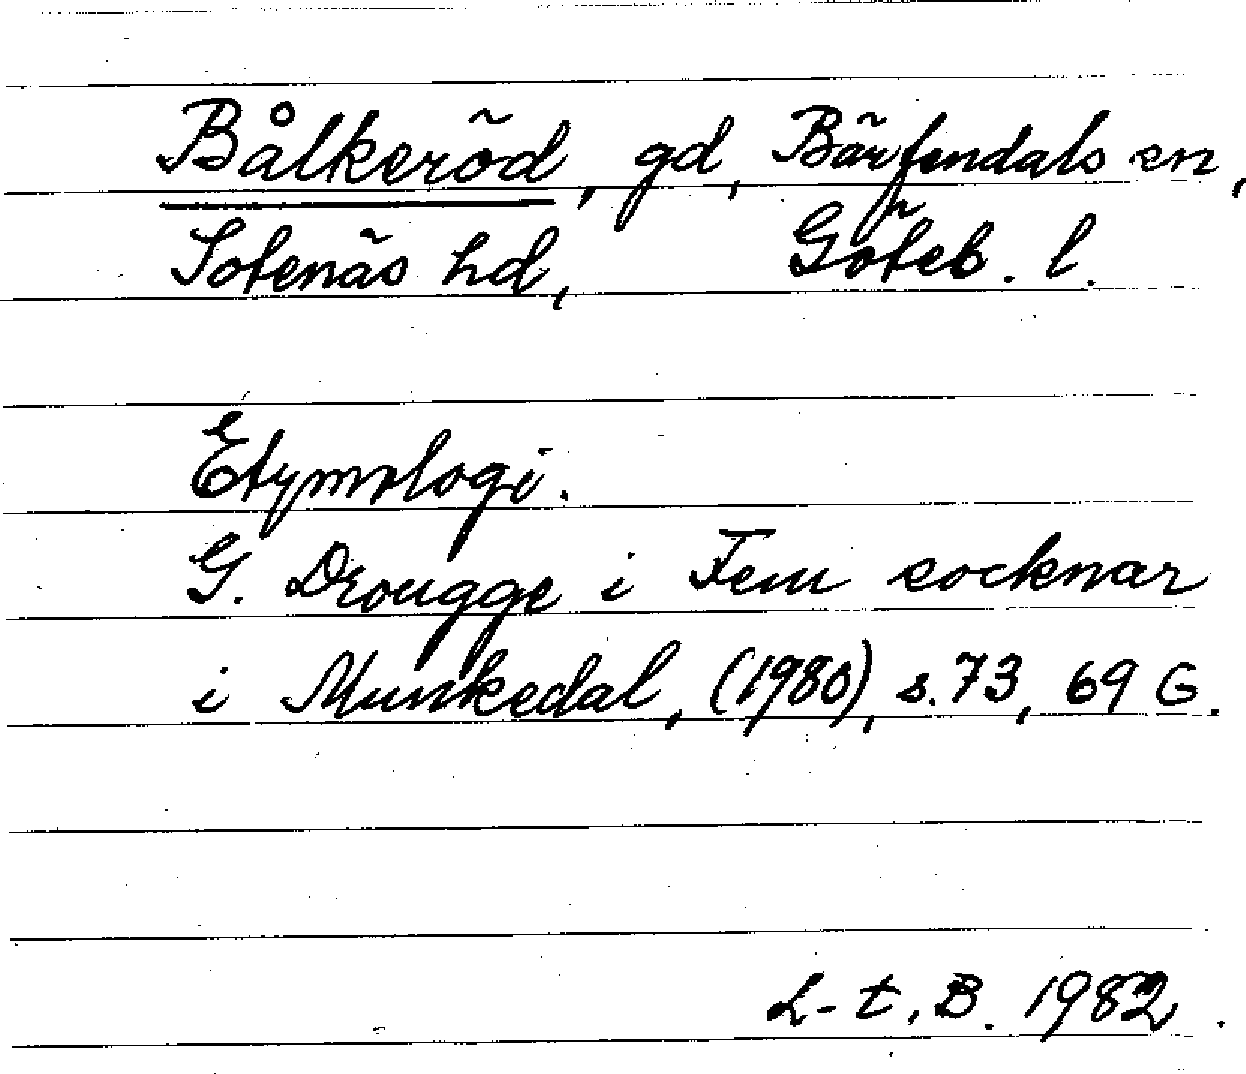 Bålkeröd, gd, Bärfendals sn,
Sotenäs hd, Göteb. l.
Etymologi.
G. Drougge i Fem socknar
i Munkedal, (1980), s. 73, 69 G.
L-t, B. 1982.